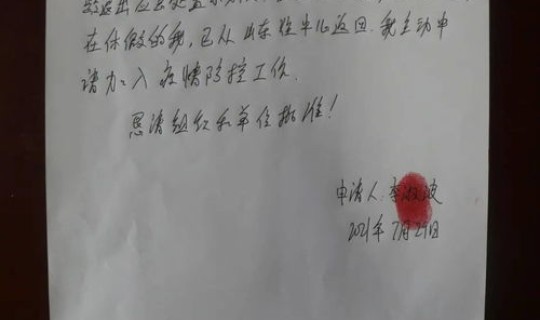 在休假的我，已从山东临牟儿返回.我主动申
请加入疫情防控工作.
恳请组织和单位批准！
申请人:李淑波
2021年7月29日